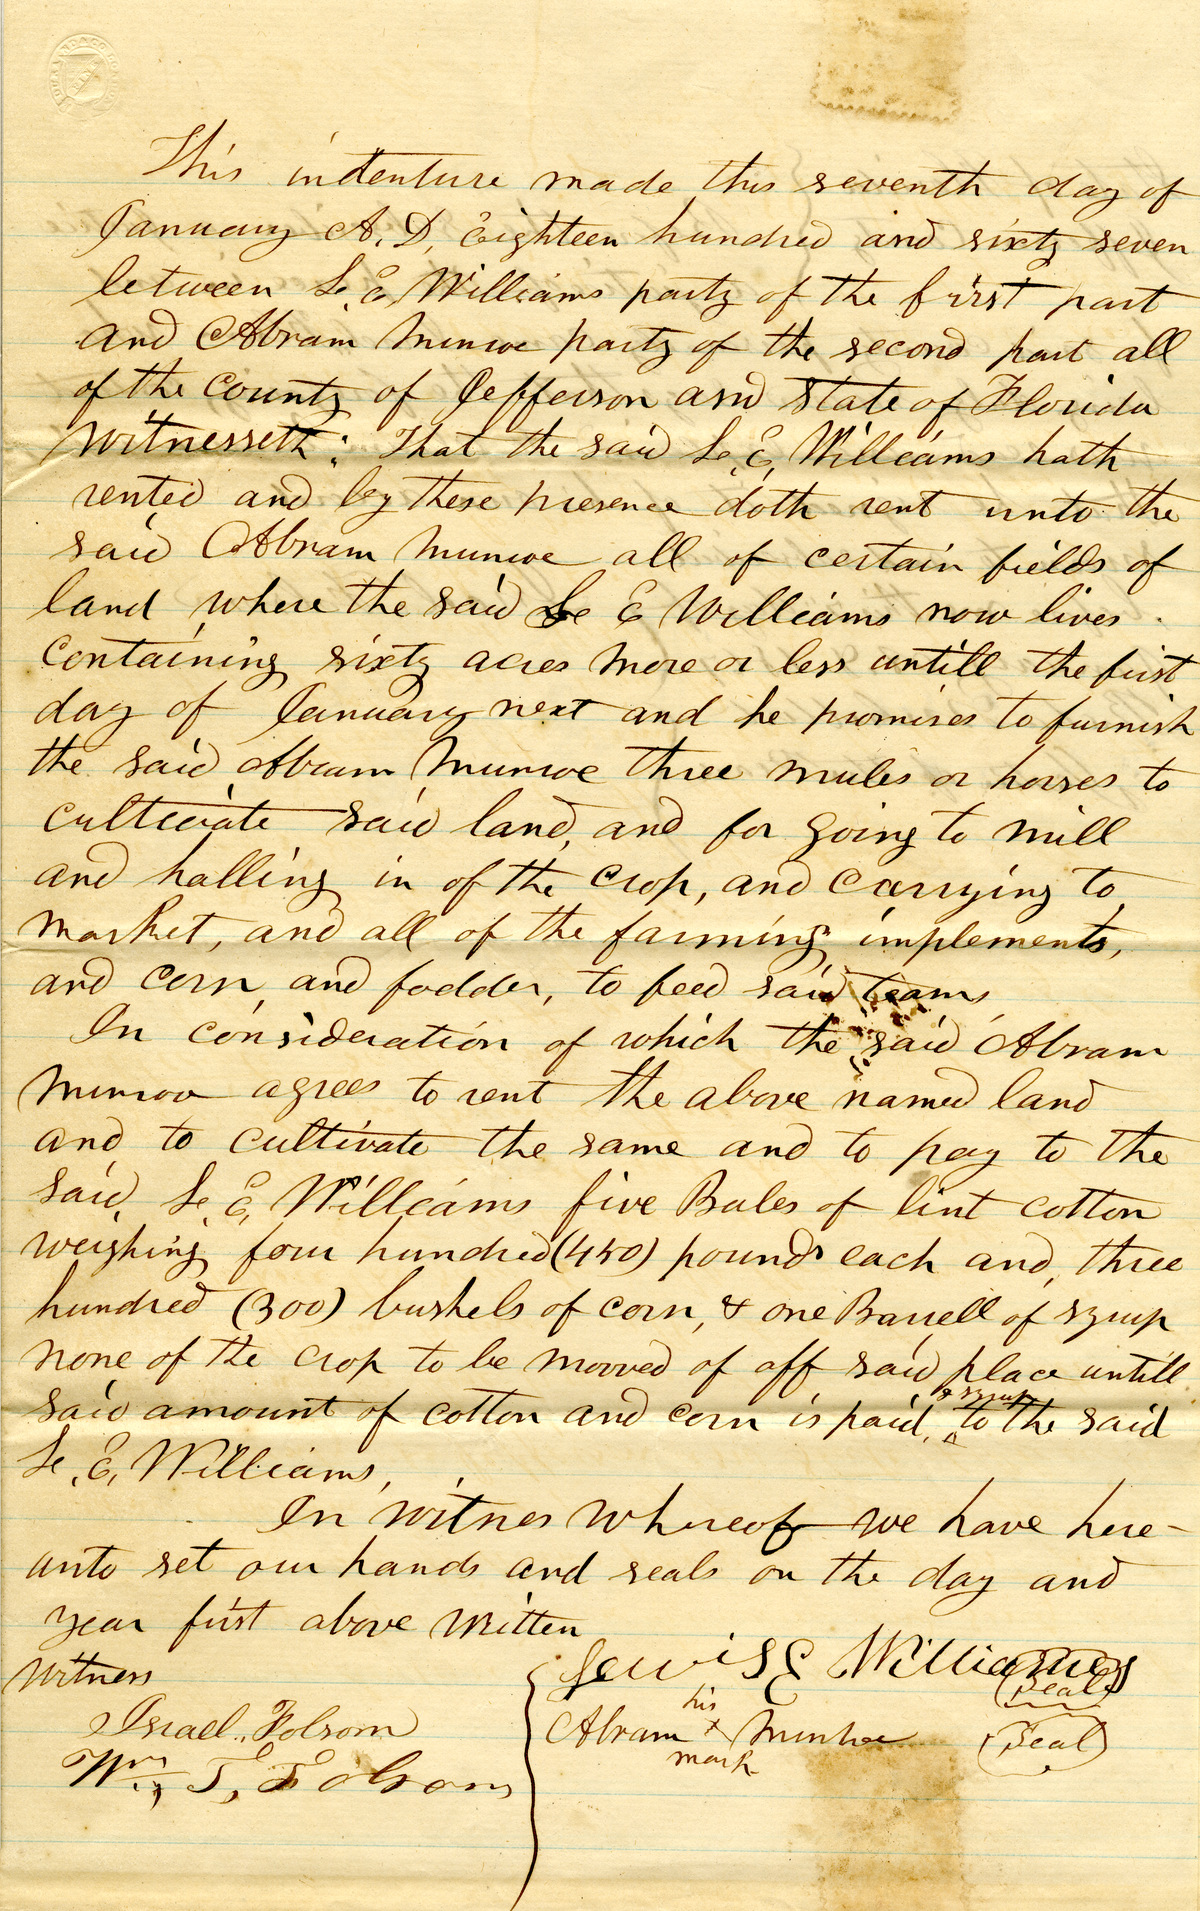 This indenture made this seventh day of
January A. D, Eighteen hundred and sixty seven
between L. E, Williams party of the first part
and Abram Munroe party of the second part all
of the County of Jefferson and State of Florida
Witnesseth; That the said L. E, Williams hath
rented and by these presence doth rent unto the
said Abram Munroe all of certain fields of
land where the said L E Williams now lives
containing sixty acres more or less untill the first
day of January next and he promises to furnish
the said Abram Munroe three mules or horses to
cultivate said land, and for going to mill
and halling in of the crop, and carrying to
market, and all of the farming implements,
and corn, and fodder, to feed said teams,
In consideration of which the said Abram
Munroe agrees to rent the above named land
and to cultivate the same and to pay to the
said, L. E, Williams five Bales of lint cotton
weighing four hundred (450) pounds each and, three
hundred (300) bushels of corn, & one Barrell of syrup
none of the crop to be mooved of off said place untill
& syrup
said amount of cotton and corn is paid, to the said
L. E, Williams,
In Witness Whereof we have here-
unto set our hands and seals on the day and
year first above Written
Witness
Lewis E Williams (Seal)
his
Israel. Folsom
Abram x Munroe (Seal)
mark
Wm, T, Folsom